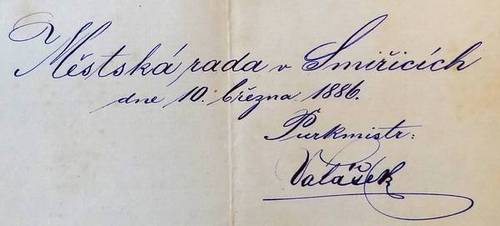 Městská rada v Smiřicích
dne 10. března 1886.
Purkmistr:
Valášek